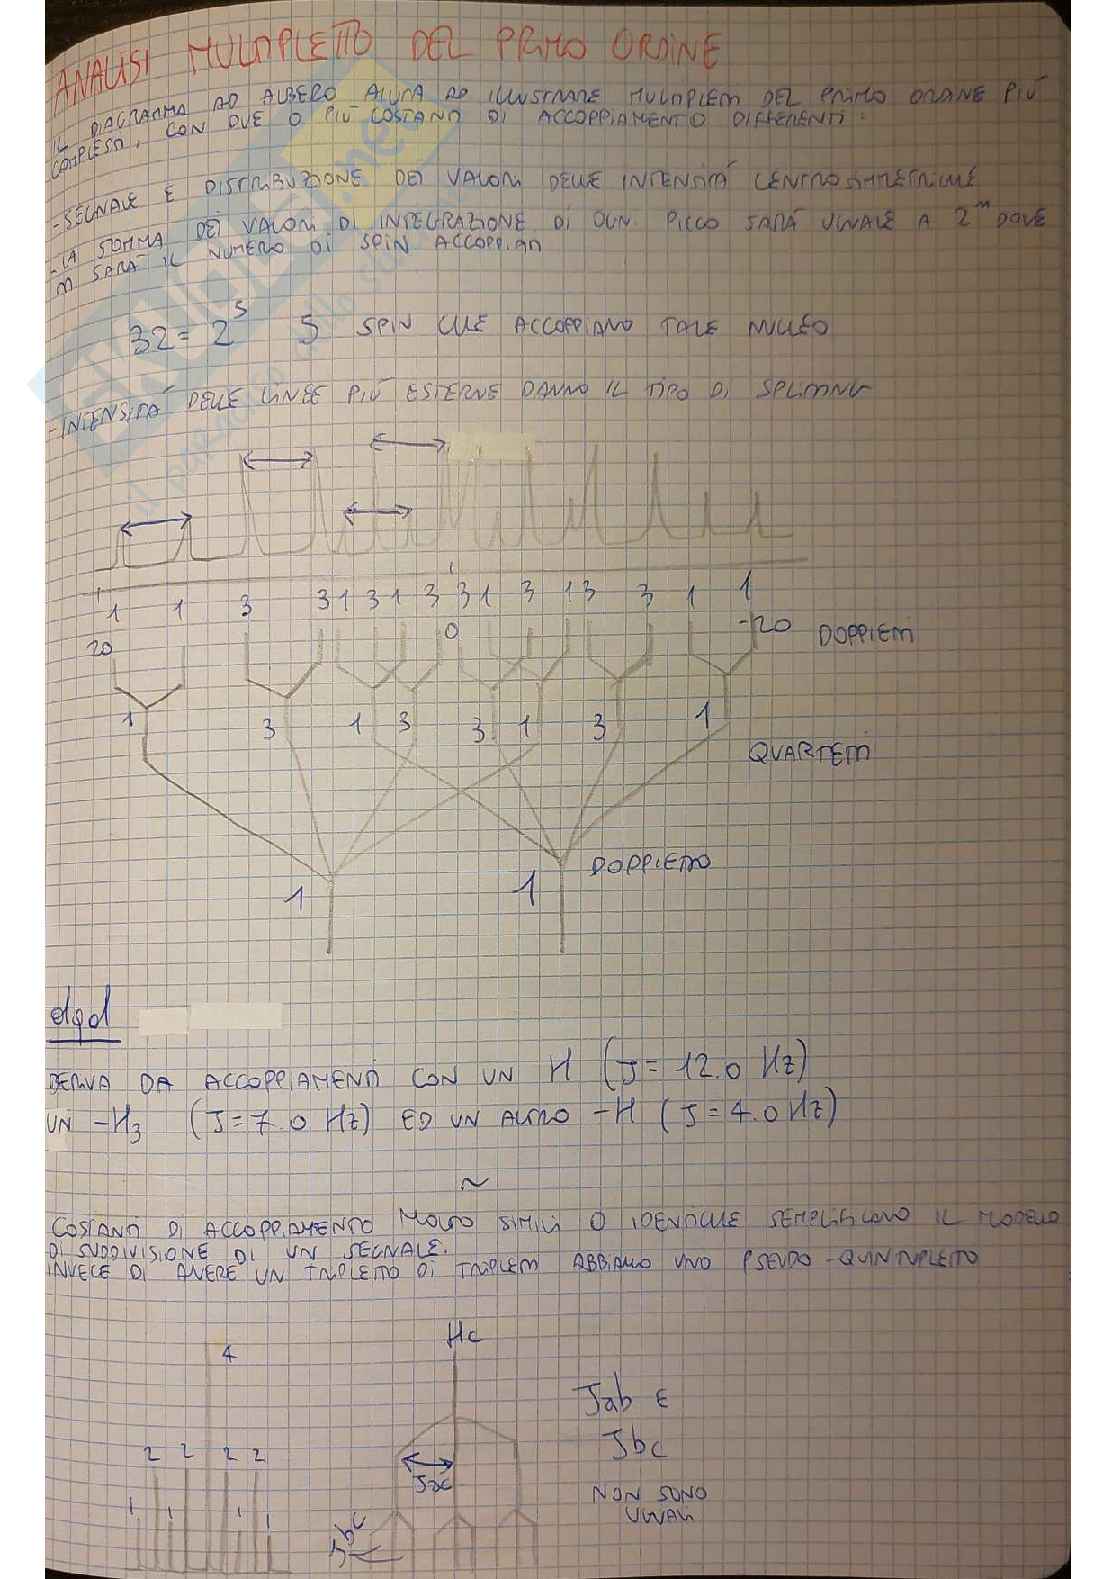 ANALISI MULTIPLETTO DEL PRIMO ORDINE
IL DIAGRAMMA AD ALBERO AIUTA AD ILLUSTRARE MULTIPLETTI DEL PRIMO ORDINE PIÙ
COMPLESSI, CON DUE O PIÙ COSTANTI DI ACCOPPIAMENTO DIFFERENTI:
- SEGNALE E DISTRIBUZIONE DEI VALORI DELLE INTENSITÀ CENTROSIMETRICHE
- LA SOMMA DEI VALORI DI INTEGRAZIONE DI OGNI PICCO SARÀ UGUALE A 2^n DOVE
n SARÀ IL NUMERO DI SPIN ACCOPPIATI
32 = 2^5 5 SPIN CHE ACCOPPIANO TALE NUCLEO
- INTENSITÀ DELLE LINEE PIÙ ESTERNE DANNO IL TIPO DI SPLITTING
1 1 3 3 1 3 1 3 3 1 3 1 3 3 1 1
20 0 -20 DOPPIETTI
1 3 1 3 3 1 3 1
QUARTETTI
DOPPIETTO
1 1
dqd
DERIVA DA ACCOPPIAMENTI CON UN H (J = 12.0 Hz)
UN -H3 (J = 7.0 Hz) ED UN ALTRO -H (J = 4.0 Hz)
~
COSTANTI DI ACCOPPIAMENTO MOLTO SIMILI O IDENTICHE SEMPLIFICANO IL MODELLO
DI SUDDIVISIONE DI UN SEGNALE.
INVECE DI AVERE UN TRIPLETTO DI TRIPLETTI ABBIAMO UNO PSEUDO-QUINTUPLETTO
Hc
4
Jab E
Jbc
2 2 2 2
Jac
NON SONO
UGUALI
1 1 1 1
Jbc